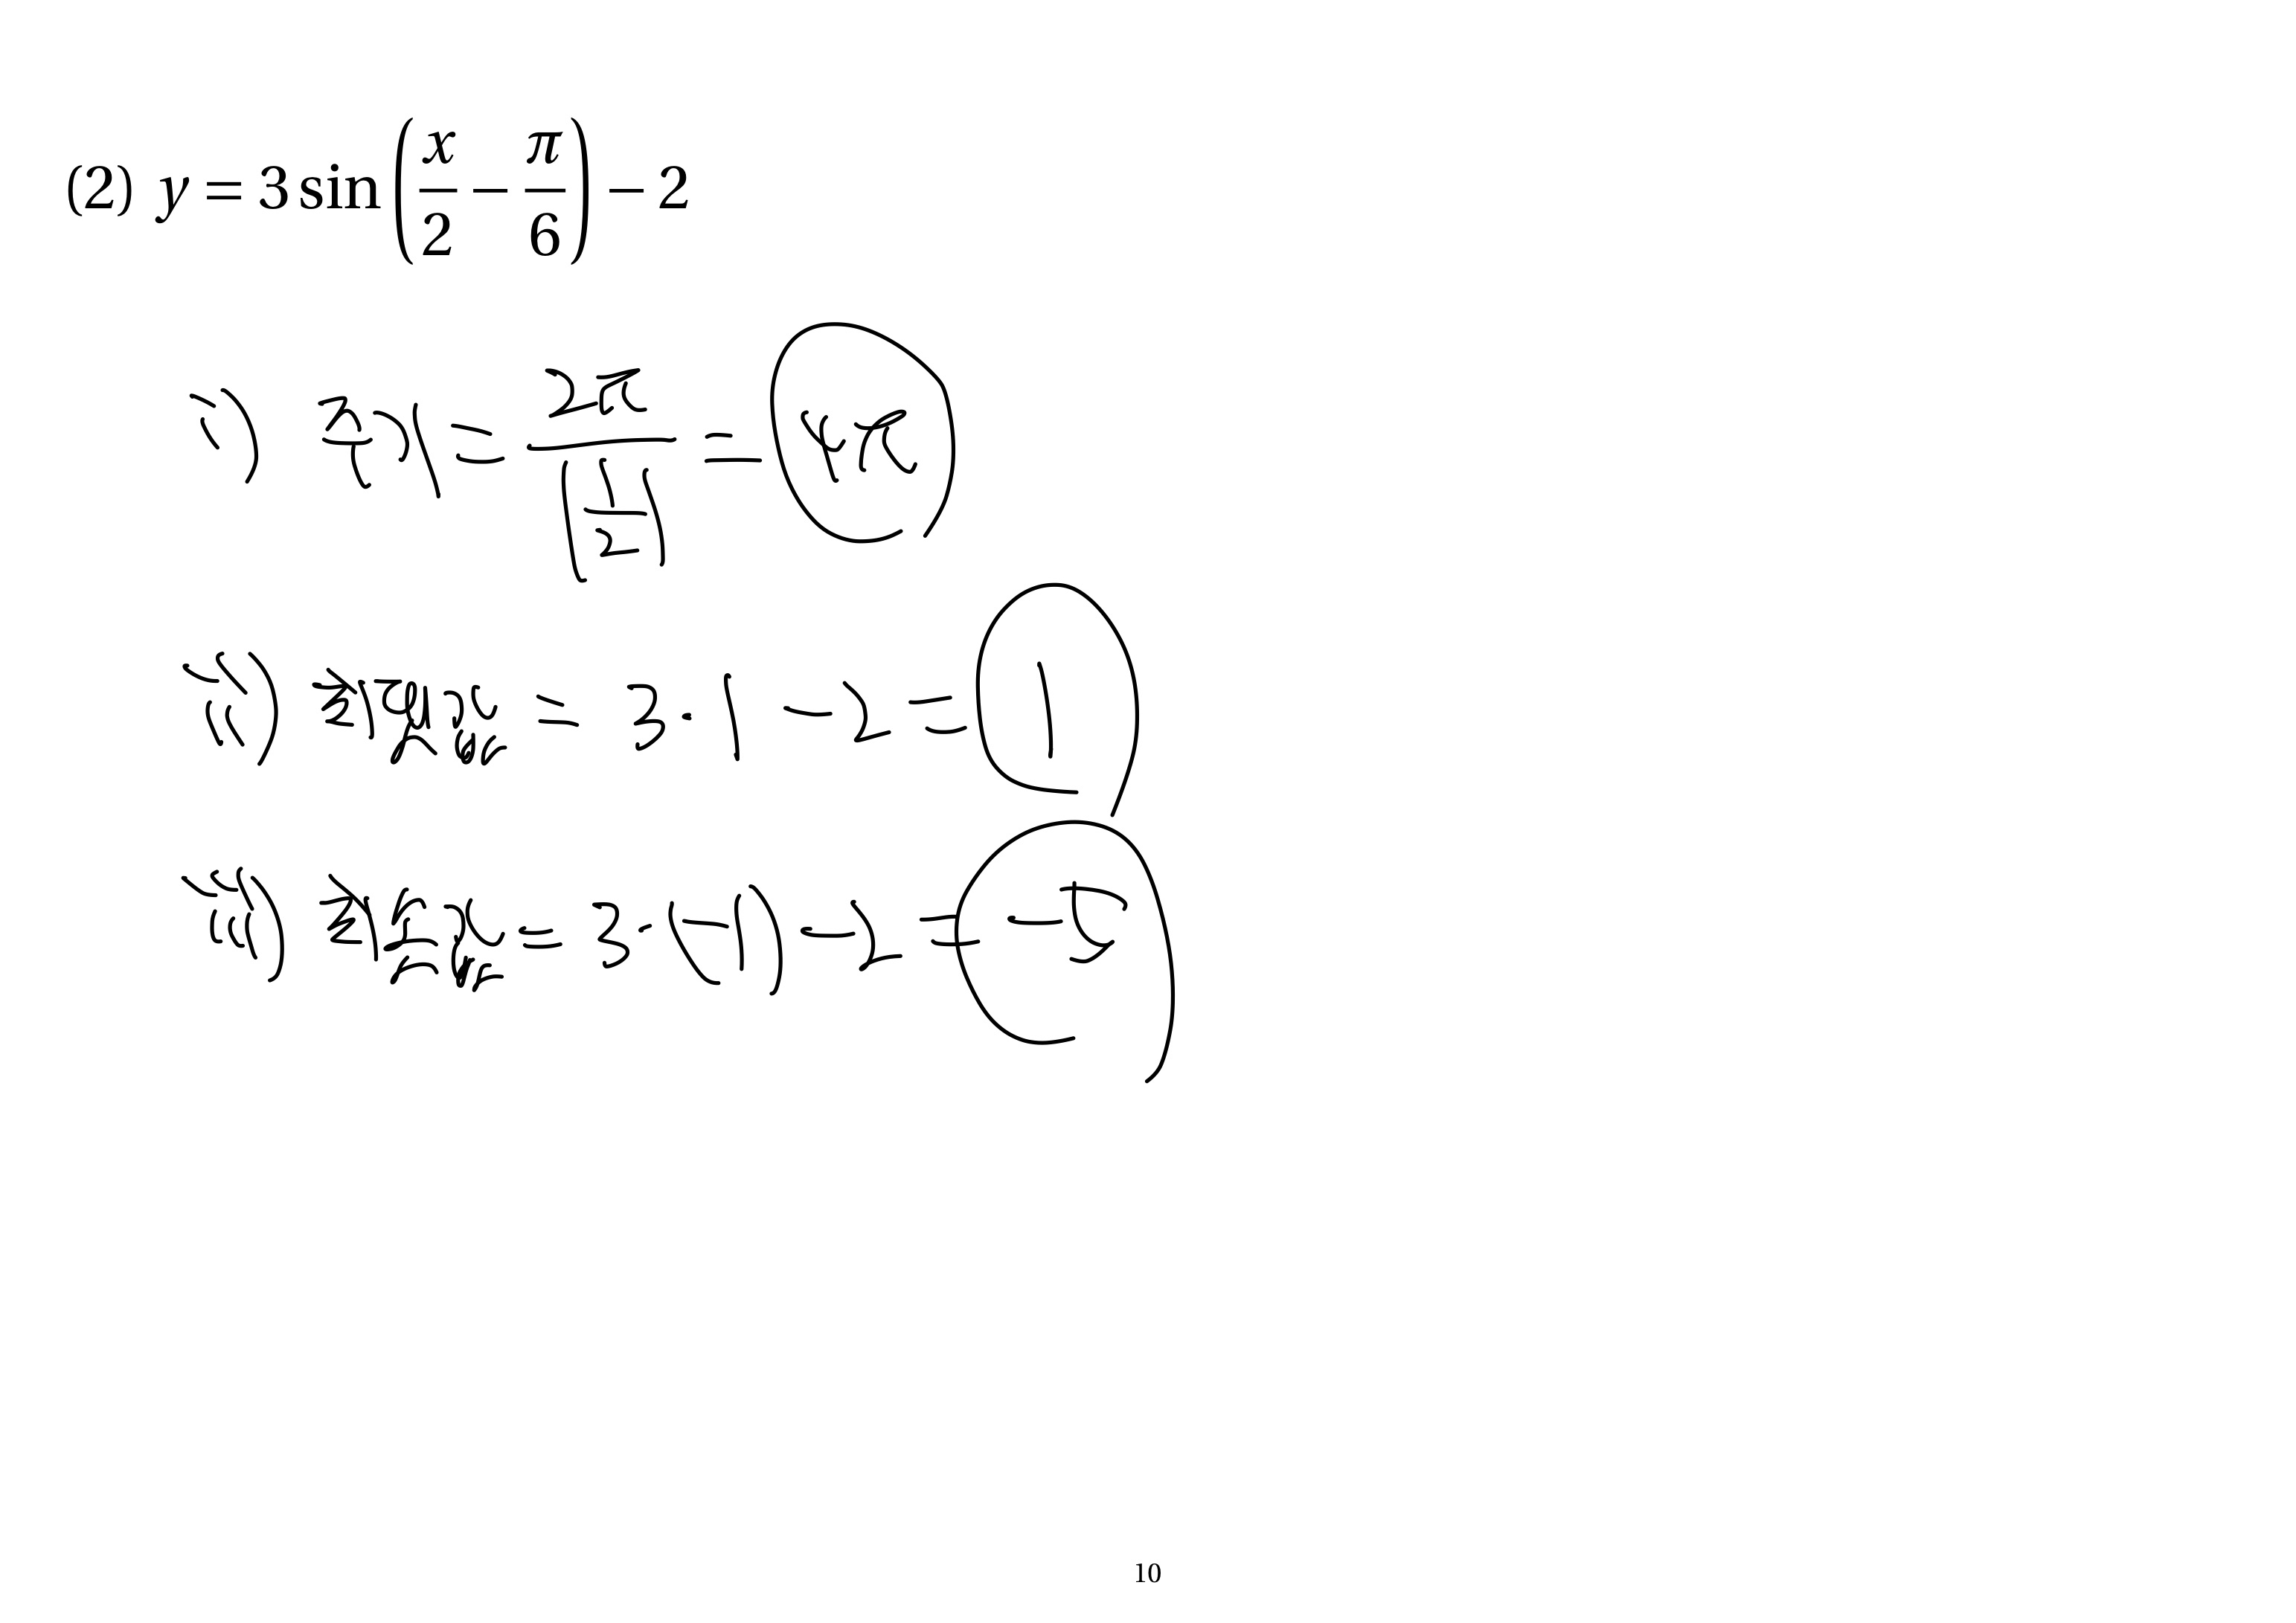 (2) y = 3 sin(x/2 − π/6) − 2
i) 주기 = 2π/|1/2| = 4π
ii) 최댓값 = 3·1 − 2 = 1
iii) 최솟값 = 3·(−1) − 2 = −5
10